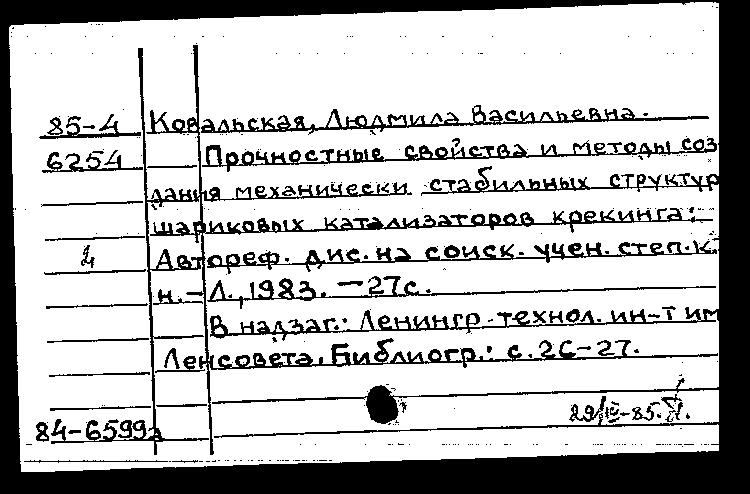 85-4 Ковальская, Людмила Васильевна.
6254 Прочностные свойства и методы соз
дания механически стабильных структур
шариковых катализаторов крекинга:
Автореф. дис. на соиск. учен. степ. к.
н. - Л., 1983. - 27с.
В надзаг.: Ленингр. технол. ин-т им
Ленсовета. Библиогр.: с. 26-27.
84-6599а